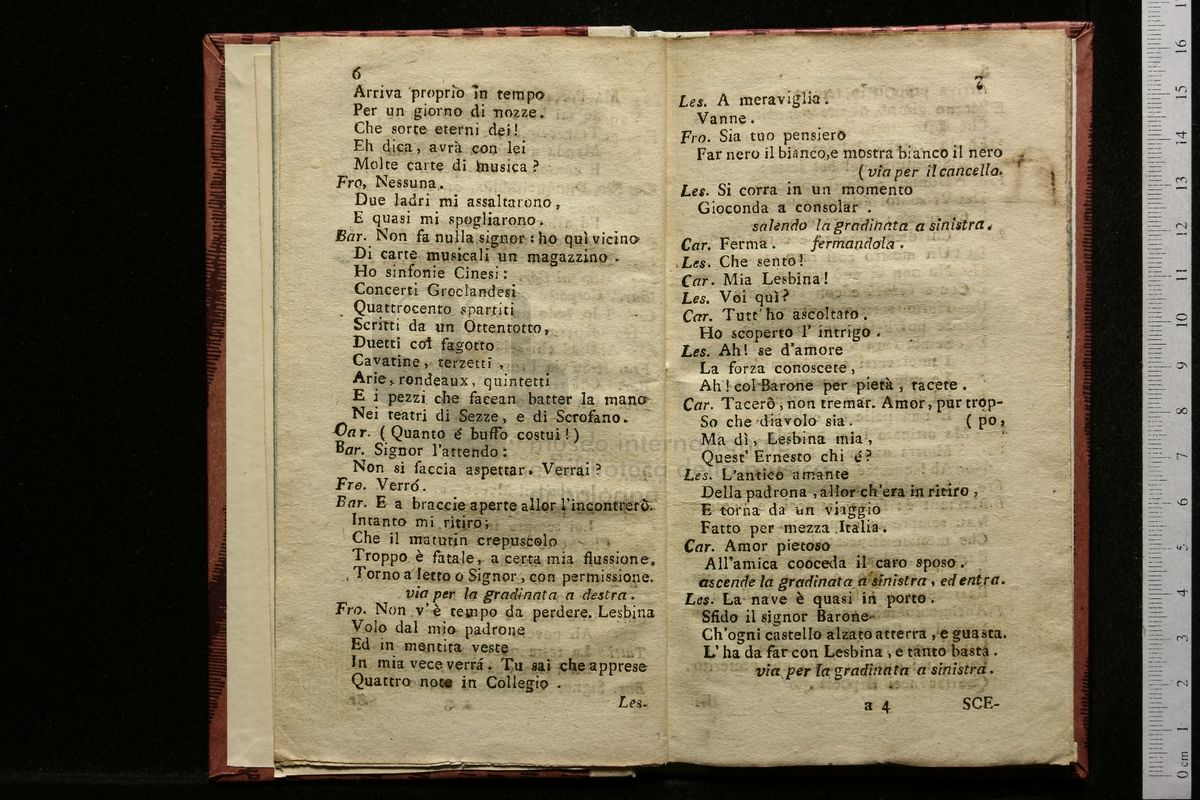 6
Arriva proprio in tempo
Per un giorno di nozze.
Che sorte eterni dei!
Eh dica, avrà con lei
Molte carte di musica?
Fro, Nessuna.
Due ladri mi assaltarono,
E quasi mi spogliarono.
Bar. Non fa nulla signor: ho quì vicino
Di carte musicali un magazzino.
Ho sinfonie Cinesi:
Concerti Groelandesi
Quattrocento spartiti
Scritti da un Ottentotto,
Duetti col fagotto
Cavatine, terzetti,
Arie, rondeaux, quintetti
E i pezzi che facean batter la mano
Nei teatri di Sezze, e di Scrofano.
Car. (Quanto é buffo costui!)
Bar. Signor l'attendo:
Non si faccia aspettar. Verrai?
Fro. Verró.
Bar. E a braccie aperte allor l'incontrerò.
Intanto mi ritiro;
Che il matutin crepuscolo
Troppo è fatale, a certa mia flussione.
Torno a letto o Signor, con permissione.
via per la gradinata a destra.
Fro. Non v'è tempo da perdere. Lesbina
Volo dal mio padrone
Ed in mentita veste
In mia vece verrá. Tu sai che apprese
Quattro note in Collegio.
Les-
7
Les. A meraviglia.
Vanne.
Fro. Sia tuo pensiero
Far nero il bianco, e mostra bianco il nero
(via per il cancello.
Les. Si corra in un momento
Gioconda a consolar.
salendo la gradinata a sinistra.
Car. Ferma. fermandola.
Les. Che sento!
Car. Mia Lesbina!
Les. Voi quì?
Car. Tutt' ho ascoltato.
Ho scoperto l' intrigo.
Les. Ah! se d'amore
La forza conoscete,
Ah! col Barone per pietà, tacete.
Car. Tacerò, non tremar. Amor, pur trop-
So che diavolo sia. (po,
Ma dì, Lesbina mia,
Quest' Ernesto chi é?
Les. L'antico amante
Della padrona, allor ch'era in ritiro,
E torna da un viaggio
Fatto per mezza Italia.
Car. Amor pietoso
All'amica cooceda il caro sposo.
ascende la gradinata a sinistra, ed entra.
Les. La nave è quasi in porto.
Sfido il signor Barone
Ch'ogni castello alzato atterra, e guasta.
L' ha da far con Lesbina, e tanto basta.
via per la gradinata a sinistra.
a 4 SCE-